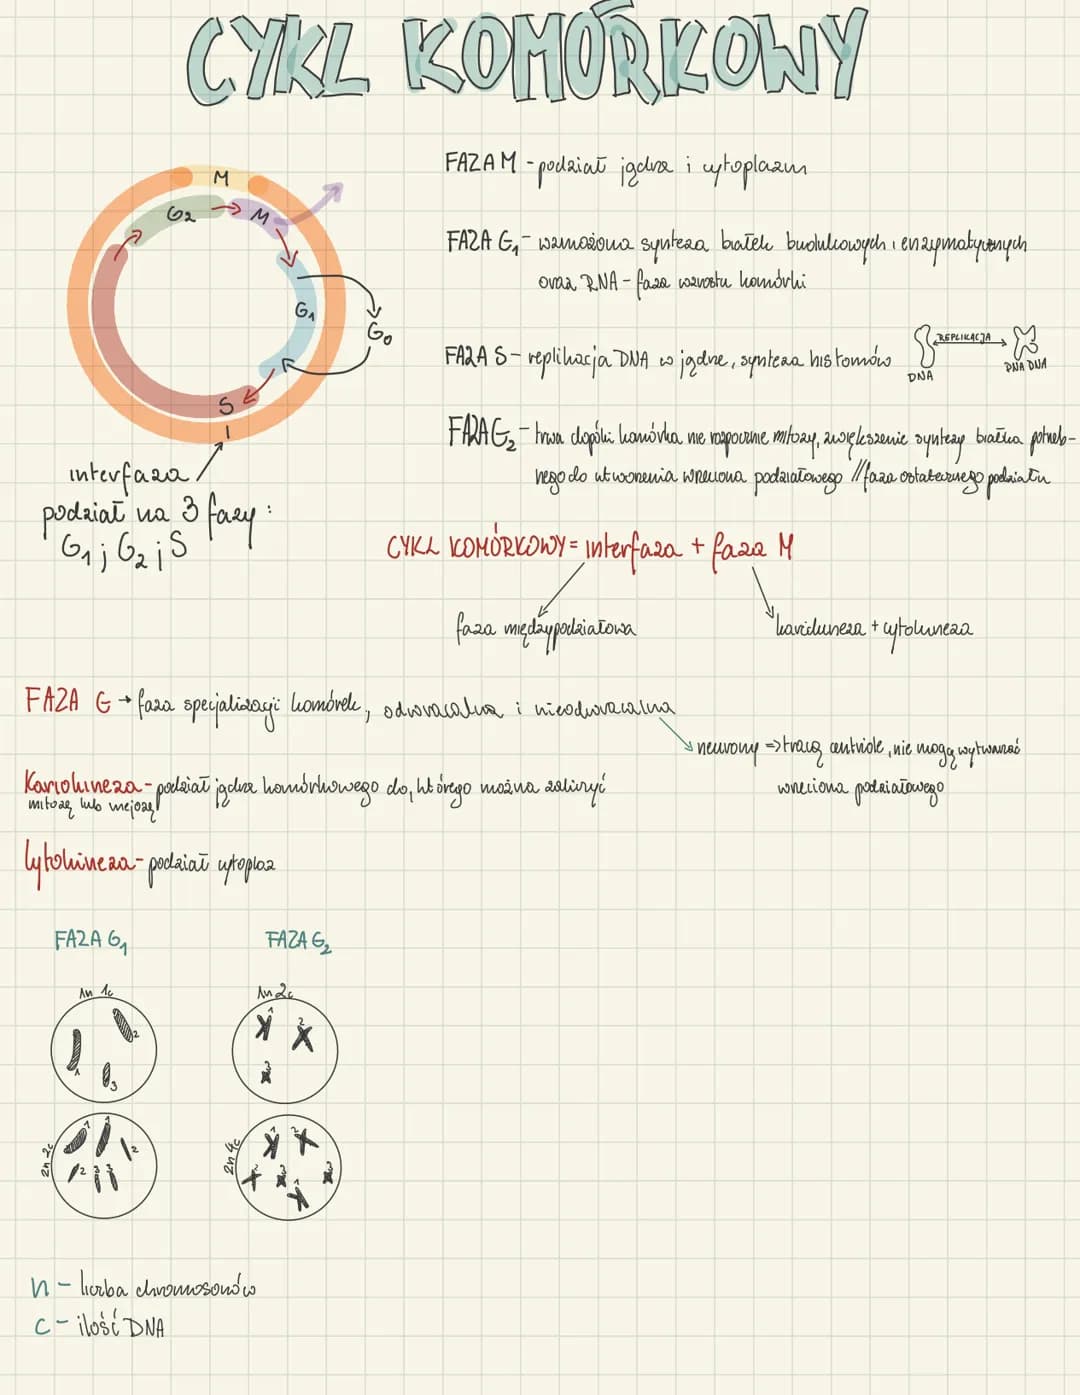 CYKL KOMÓRKOWY
M
G2
M
G1
G0
S
I
interfaza
podział na 3 fazy:
G1; G2; S
FAZA M - podział jądra i cytoplazm
FAZA G1 - wzmożona synteza białek budulkowych i enzymatycznych
oraz RNA - faza wzrostu komórki
FAZA S - replikacja DNA w jądrze, synteza histonów
REPLIKACJA
DNA
DNA DNA
FAZA G2 - trwa dopóki komórka nie rozpocznie mitozy, zwiększenie syntezy białka potrzeb-
nego do utworzenia wrzeciona podziałowego // faza ostatecznego podziału
CYKL KOMÓRKOWY = interfaza + faza M
faza międzypodziałowa
kariokineza + cytokineza
FAZA G → faza specjalizacji komórek, odwracalna i nieodwracalna
neurony => tracą centriole, nie mogą wytwarzać
wrzeciona podziałowego
Kariokineza - podział jądra komórkowego do, którego można zaliczyć
mitozę lub mejozę
Cytokineza - podział cytoplaz
FAZA G1
FAZA G2
1n 1c
1
2
3
1n 2c
1
2
3
2n 2c
1
1
2
2
3
3
2n 4c
1
2
2
3
3
1
n - liczba chromosonów
c - ilość DNA